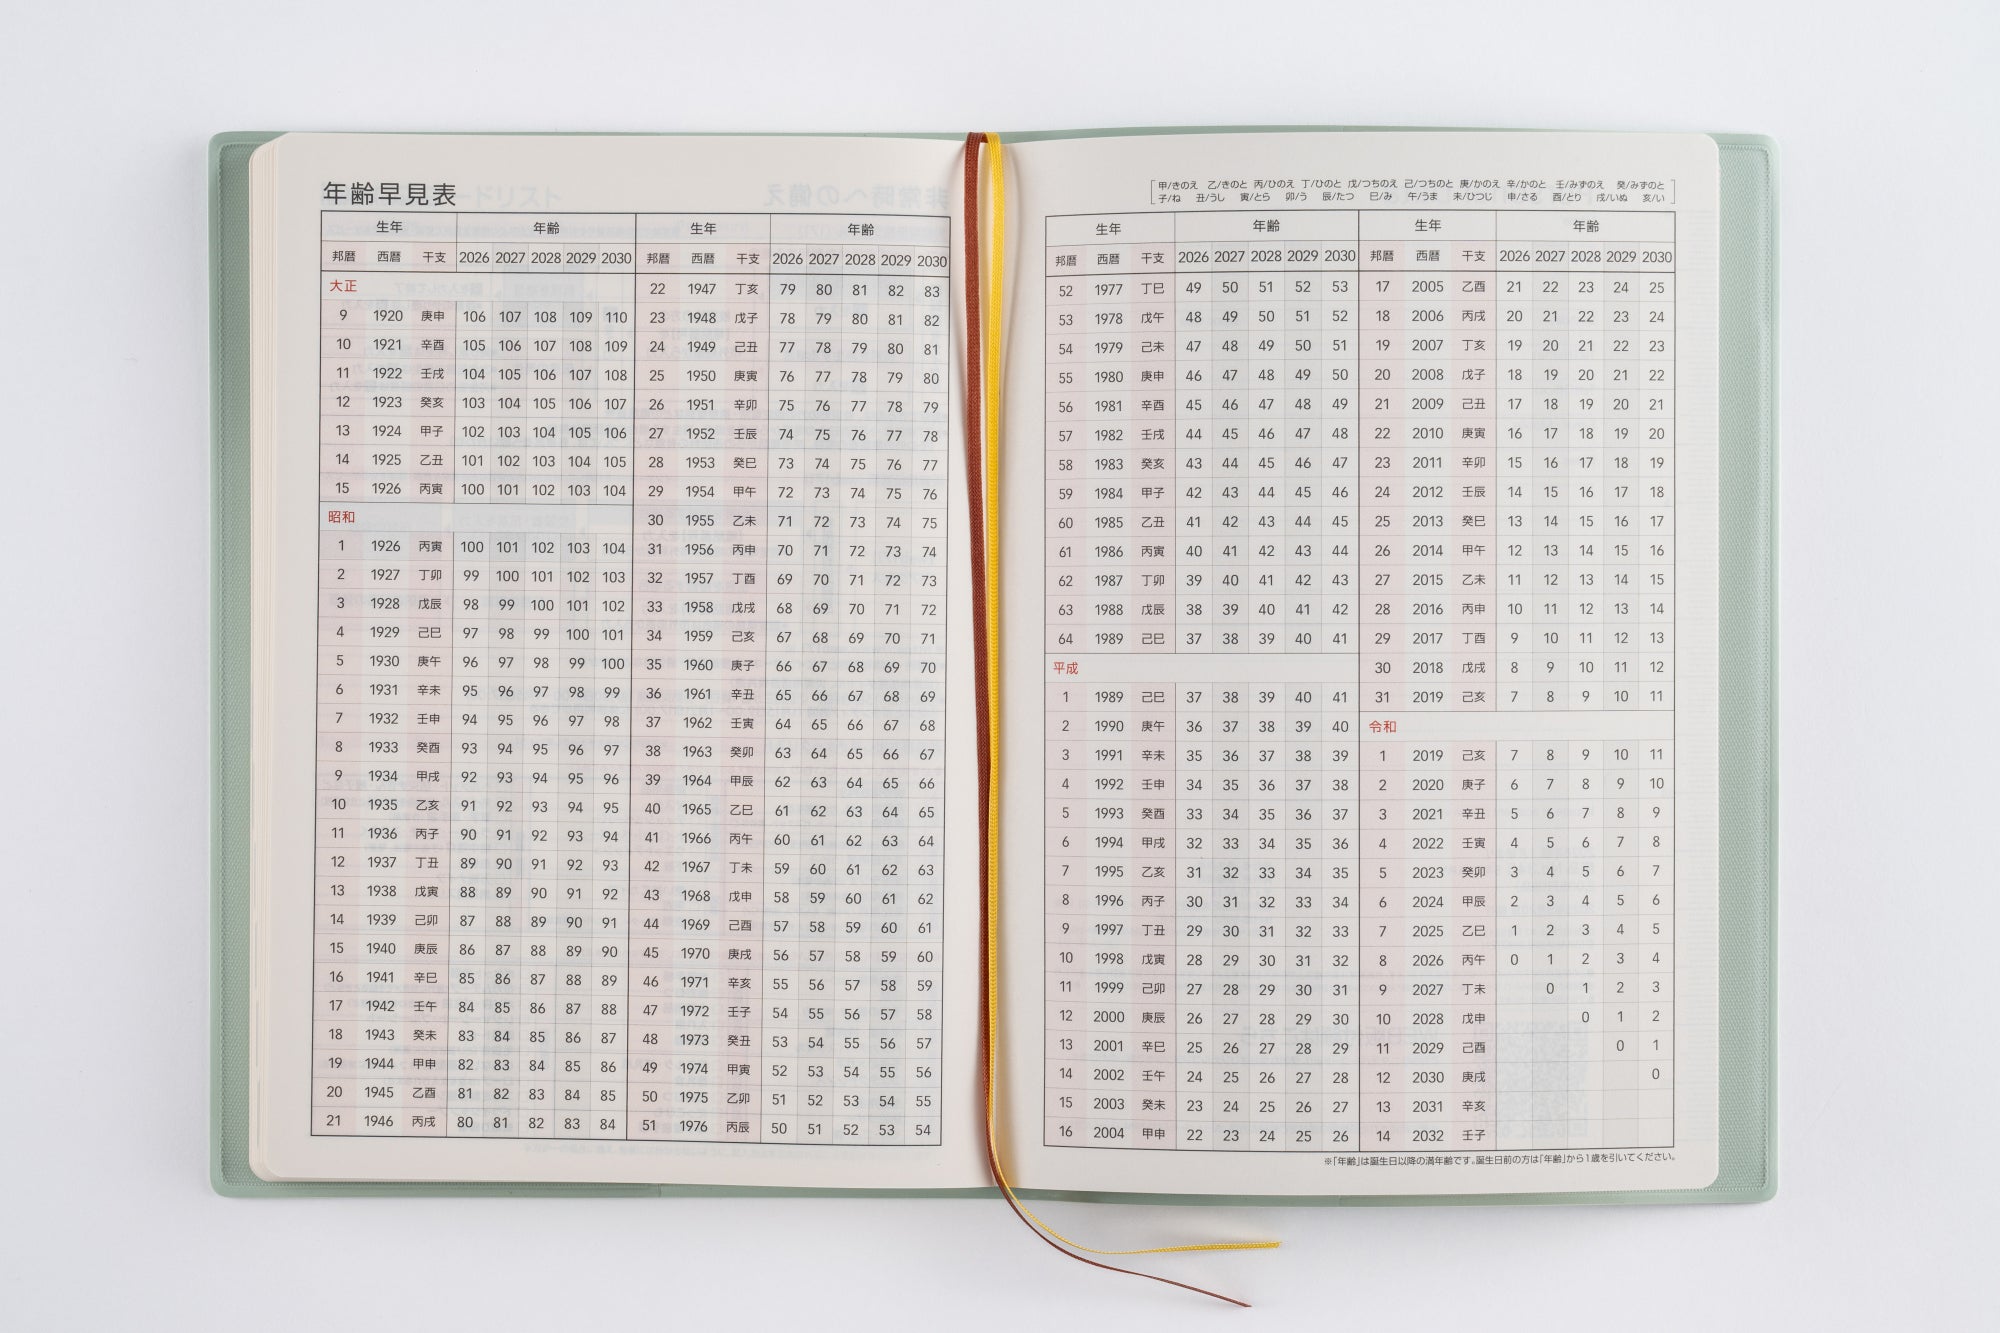 年齢早見表
生年 年齢 生年 年齢
邦暦 西暦 干支 2026 2027 2028 2029 2030 邦暦 西暦 干支 2026 2027 2028 2029 2030
大正 22 1947 丁亥 79 80 81 82 83
9 1920 庚申 106 107 108 109 110 23 1948 戊子 78 79 80 81 82
10 1921 辛酉 105 106 107 108 109 24 1949 己丑 77 78 79 80 81
11 1922 壬戌 104 105 106 107 108 25 1950 庚寅 76 77 78 79 80
12 1923 癸亥 103 104 105 106 107 26 1951 辛卯 75 76 77 78 79
13 1924 甲子 102 103 104 105 106 27 1952 壬辰 74 75 76 77 78
14 1925 乙丑 101 102 103 104 105 28 1953 癸巳 73 74 75 76 77
15 1926 丙寅 100 101 102 103 104 29 1954 甲午 72 73 74 75 76
昭和 30 1955 乙未 71 72 73 74 75
1 1926 丙寅 100 101 102 103 104 31 1956 丙申 70 71 72 73 74
2 1927 丁卯 99 100 101 102 103 32 1957 丁酉 69 70 71 72 73
3 1928 戊辰 98 99 100 101 102 33 1958 戊戌 68 69 70 71 72
4 1929 己巳 97 98 99 100 101 34 1959 己亥 67 68 69 70 71
5 1930 庚午 96 97 98 99 100 35 1960 庚子 66 67 68 69 70
6 1931 辛未 95 96 97 98 99 36 1961 辛丑 65 66 67 68 69
7 1932 壬申 94 95 96 97 98 37 1962 壬寅 64 65 66 67 68
8 1933 癸酉 93 94 95 96 97 38 1963 癸卯 63 64 65 66 67
9 1934 甲戌 92 93 94 95 96 39 1964 甲辰 62 63 64 65 66
10 1935 乙亥 91 92 93 94 95 40 1965 乙巳 61 62 63 64 65
11 1936 丙子 90 91 92 93 94 41 1966 丙午 60 61 62 63 64
12 1937 丁丑 89 90 91 92 93 42 1967 丁未 59 60 61 62 63
13 1938 戊寅 88 89 90 91 92 43 1968 戊申 58 59 60 61 62
14 1939 己卯 87 88 89 90 91 44 1969 己酉 57 58 59 60 61
15 1940 庚辰 86 87 88 89 90 45 1970 庚戌 56 57 58 59 60
16 1941 辛巳 85 86 87 88 89 46 1971 辛亥 55 56 57 58 59
17 1942 壬午 84 85 86 87 88 47 1972 壬子 54 55 56 57 58
18 1943 癸未 83 84 85 86 87 48 1973 癸丑 53 54 55 56 57
19 1944 甲申 82 83 84 85 86 49 1974 甲寅 52 53 54 55 56
20 1945 乙酉 81 82 83 84 85 50 1975 乙卯 51 52 53 54 55
21 1946 丙戌 80 81 82 83 84 51 1976 丙辰 50 51 52 53 54
甲/きのえ 乙/きのと 丙/ひのえ 丁/ひのと 戊/つちのえ 己/つちのと 庚/かのえ 辛/かのと 壬/みずのえ 癸/みずのと
子/ね 丑/うし 寅/とら 卯/う 辰/たつ 巳/み 午/うま 未/ひつじ 申/さる 酉/とり 戌/いぬ 亥/い
生年 年齢 生年 年齢
邦暦 西暦 干支 2026 2027 2028 2029 2030 邦暦 西暦 干支 2026 2027 2028 2029 2030
52 1977 丁巳 49 50 51 52 53 17 2005 乙酉 21 22 23 24 25
53 1978 戊午 48 49 50 51 52 18 2006 丙戌 20 21 22 23 24
54 1979 己未 47 48 49 50 51 19 2007 丁亥 19 20 21 22 23
55 1980 庚申 46 47 48 49 50 20 2008 戊子 18 19 20 21 22
56 1981 辛酉 45 46 47 48 49 21 2009 己丑 17 18 19 20 21
57 1982 壬戌 44 45 46 47 48 22 2010 庚寅 16 17 18 19 20
58 1983 癸亥 43 44 45 46 47 23 2011 辛卯 15 16 17 18 19
59 1984 甲子 42 43 44 45 46 24 2012 壬辰 14 15 16 17 18
60 1985 乙丑 41 42 43 44 45 25 2013 癸巳 13 14 15 16 17
61 1986 丙寅 40 41 42 43 44 26 2014 甲午 12 13 14 15 16
62 1987 丁卯 39 40 41 42 43 27 2015 乙未 11 12 13 14 15
63 1988 戊辰 38 39 40 41 42 28 2016 丙申 10 11 12 13 14
64 1989 己巳 37 38 39 40 41 29 2017 丁酉 9 10 11 12 13
平成 30 2018 戊戌 8 9 10 11 12
1 1989 己巳 37 38 39 40 41 31 2019 己亥 7 8 9 10 11
2 1990 庚午 36 37 38 39 40 令和
3 1991 辛未 35 36 37 38 39 1 2019 己亥 7 8 9 10 11
4 1992 壬申 34 35 36 37 38 2 2020 庚子 6 7 8 9 10
5 1993 癸酉 33 34 35 36 37 3 2021 辛丑 5 6 7 8 9
6 1994 甲戌 32 33 34 35 36 4 2022 壬寅 4 5 6 7 8
7 1995 乙亥 31 32 33 34 35 5 2023 癸卯 3 4 5 6 7
8 1996 丙子 30 31 32 33 34 6 2024 甲辰 2 3 4 5 6
9 1997 丁丑 29 30 31 32 33 7 2025 乙巳 1 2 3 4 5
10 1998 戊寅 28 29 30 31 32 8 2026 丙午 0 1 2 3 4
11 1999 己卯 27 28 29 30 31 9 2027 丁未 0 1 2 3
12 2000 庚辰 26 27 28 29 30 10 2028 戊申 0 1 2
13 2001 辛巳 25 26 27 28 29 11 2029 己酉 0 1
14 2002 壬午 24 25 26 27 28 12 2030 庚戌 0
15 2003 癸未 23 24 25 26 27 13 2031 辛亥
16 2004 甲申 22 23 24 25 26 14 2032 壬子
※「年齢」は誕生日以降の満年齢です。誕生日前の方は「年齢」から1歳を引いてください。